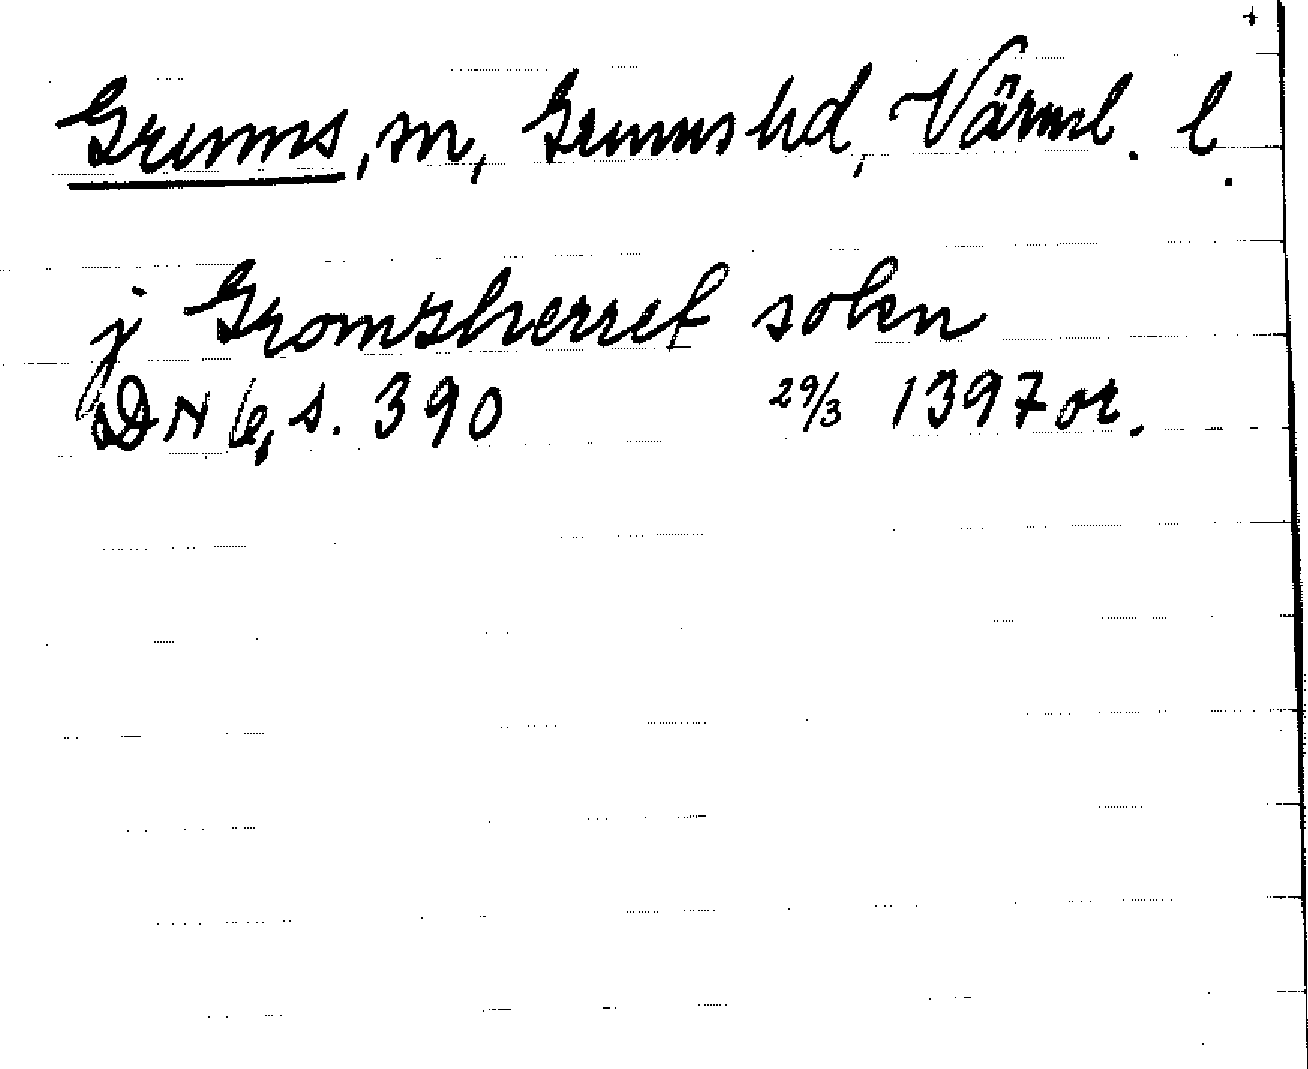 +
Grums, sn, Grums hd, Värml. l.
j Gromsherret sokn
DN 6, s. 390 29/3 1397 or.